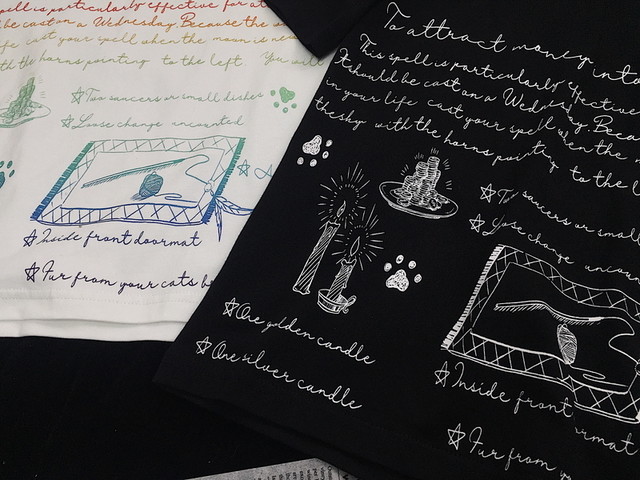 spell is particularly effective for at
be cast on a Wednesday. Because the
life cast your spell when the moon is ne
th the horns pointing to the left You will
Two saucers or small dishes
Loose change uncounted
Inside front doormat
Fur from your cats b
To attract money int
This spell is particularly effective
It should be cast on a Wednesday. Becau
in your life cast your spell when the
the sky with the horns pointing to the l
Two saucers or small
Loose change uncoun
One golden candle
One silver candle
Inside front rmat
Fur from yo